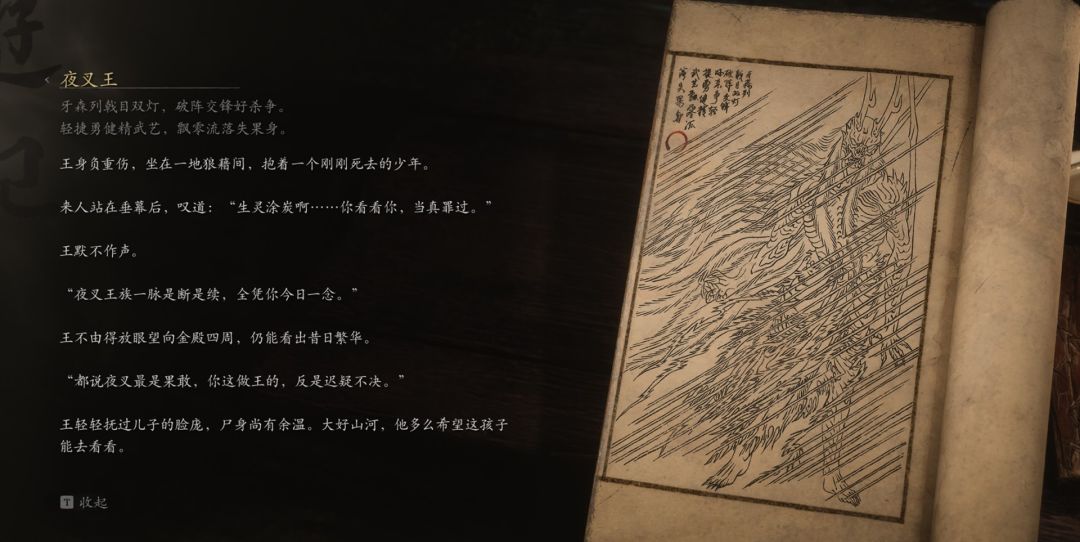 夜叉王
牙森列戟目双灯，破阵交锋好杀争。
轻捷勇健精武艺，飘零流落失果身。
王身负重伤，坐在一地狼藉间，抱着一个刚刚死去的少年。
来人站在垂幕后，叹道：“生灵涂炭啊……你看看你，当真罪过。”
王默不作声。
“夜叉王族一脉是断是续，全凭你今日一念。”
王不由得放眼望向金殿四周，仍能看出昔日繁华。
“都说夜叉最是果敢，你这做王的，反是迟疑不决。”
王轻轻抚过儿子的脸庞，尸身尚有余温。大好山河，他多么希望这孩子
能去看看。
T 收起